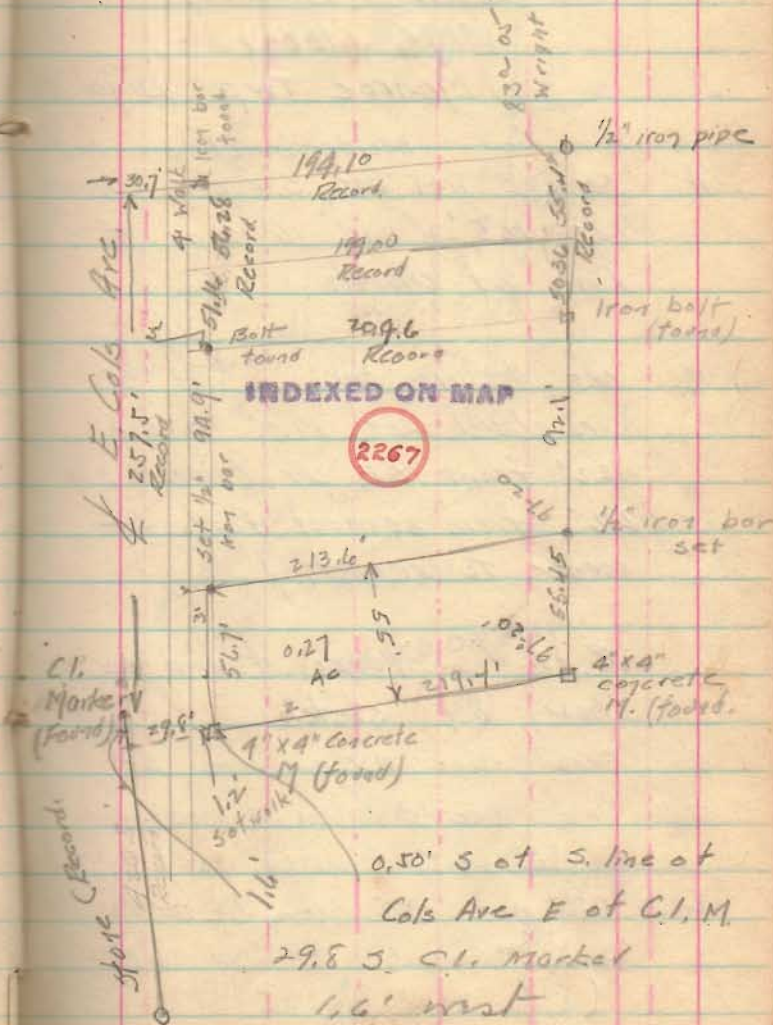 83° 05'
Wright
1/2" iron pipe
Iron bar
found
30.7'
4' Walk
194.10
Record
55.4'
Record
56.28
Record
199.00
Record
50.36
51.16
Bolt
found
204.6
Record
Iron bolt
(found)
℄ E. Cols Ave.
257.5'
Record
INDEXED ON MAP
2267
94.9'
92.1'
Set 1/2"
Iron bar
97-20
1/2" iron bar
set
213.6'
3'
56.7'
0.27
Ac
55'
55.45
97-20'
219.4'
4" x 4"
concrete
M. (found.
C.I.
Marker
(found)
29.8'
4" x 4" Concrete
M (found)
1.2'
S of walk
1.6'
Stone (Record.
0.50' S of S. line of
Cols Ave E of C.I. M.
29.8 S. C.I. Marker
1.6' west